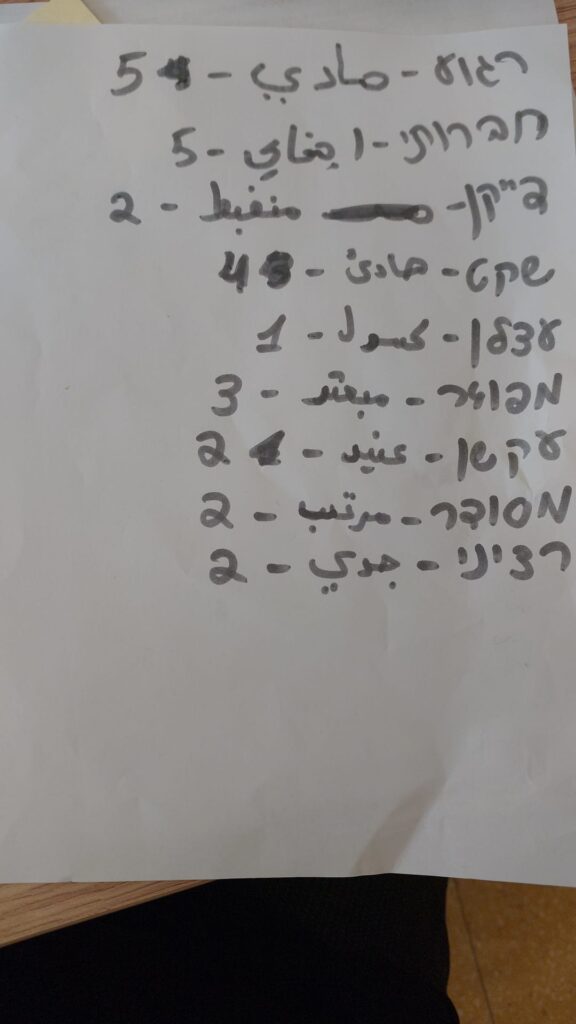 רגוע - هادي - 5
חברותי - اجتماعي - 5
דייקן - منضبط - 2
שקט - هادئ - 4
עצלן - كسول - 1
מפוזר - مبعثر - 3
עקשן - عنيد - 2
מסודר - مرتب - 2
רציני - جدي - 2